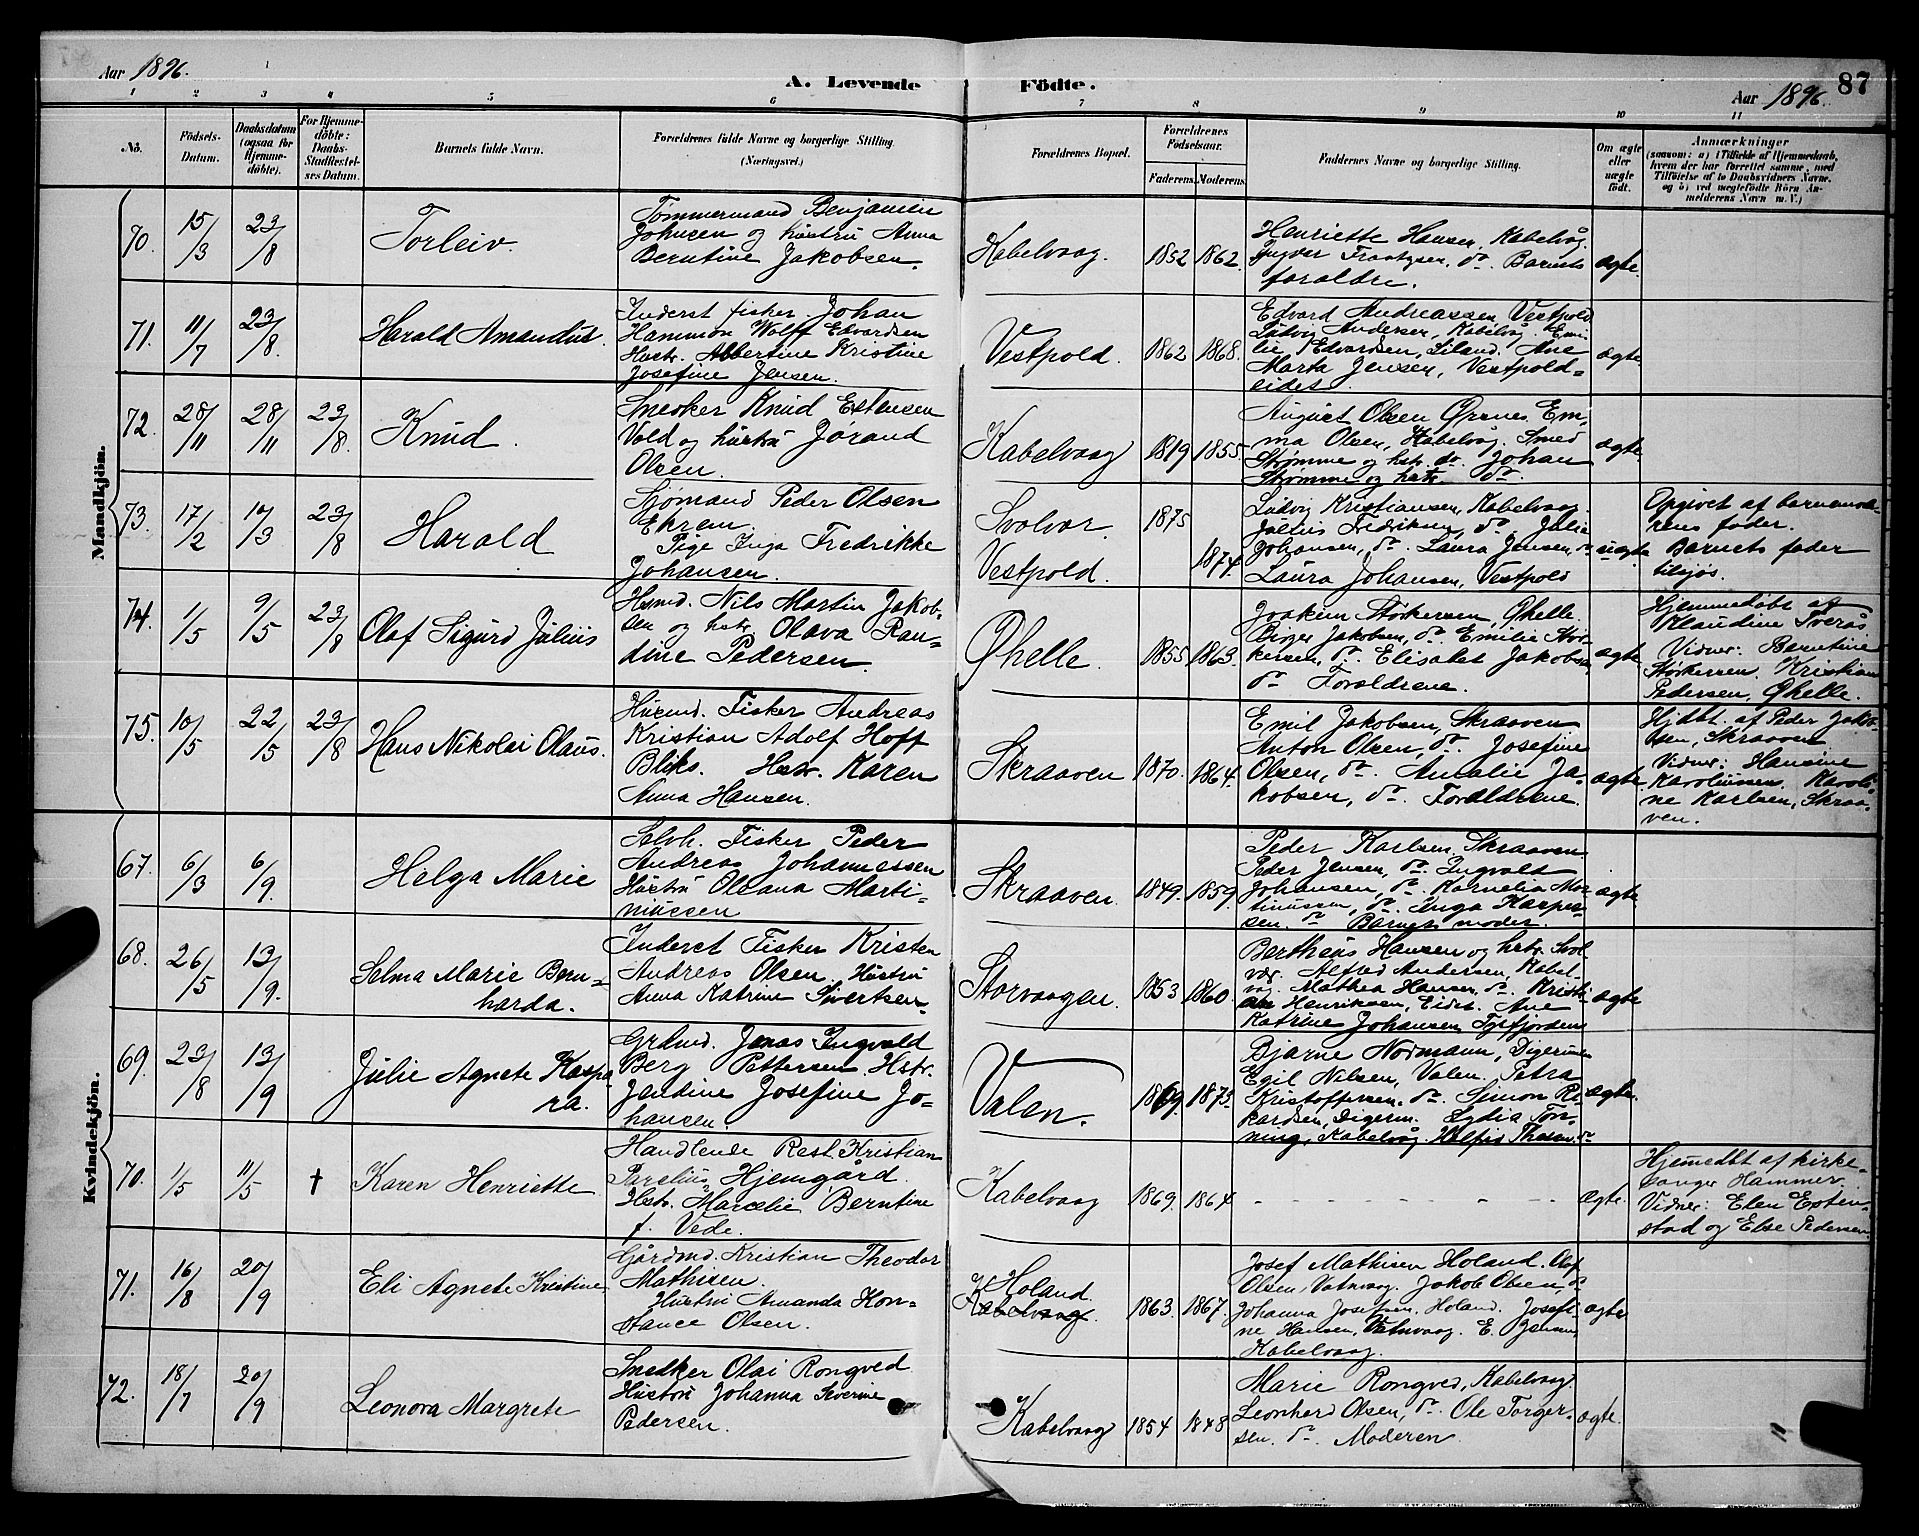 Aar 1896.
A. Levende
Födte.
Aar 1896.
87
1 2 3 4 5 6 7 8 9 10 11
No.
Födsels-
Datum.
Daabsdatum
(ogsaa for
Hjemme-
döbte).
For Hjemme-
döbte:
Daabs-
Stadfæstel-
ses Datum.
Barnets fulde Navn.
Forældrenes fulde Navne og borgerlige Stilling.
(Næringsvei.)
Forældrenes Bopæl.
Forældrenes
Födselsaar.
Faderens. Moderens.
Faddernes Navne og borgerlige Stilling.
Om ægte
eller
uægte
födt.
Anmærkninger
(saasom: a) i Tilfælde af Hjemmedaab,
hvem der har forrettet samme, med
Tilföielse af to Daabsvidners Navne,
og b) ved uægtefödte Börn An-
melderens Navn m. V.)
Mandkjön.
70. 15/3 23/8 Torleiv.
Tømmermand Benjamin
Johnsen og hustru Anna
Berntine Jakobsen.
Kabelvaag. 1852 1862.
Henriette Hansen, Kabelvåg.
Ingvar Frantzen, do. Barnets
forældre.
ægte.
71. 11/7 23/8. Harald Amandus.
Inderst fisker Johan
Hammon Wolff Edvardsen
Hustr. Albertine Kristine
Josefine Jensen.
Vestpold. 1862 1868.
Edvard Andreassen Vestpold
Ludvig Andersen, Kabelvåg. Emi-
lie Edvardsen, Siland. Ane
Marta Jensen, Vestpold-
eidet.
ægte.
72. 28/11 28/11 23/8. Knud.
Snedker Knud Estensen
Vold og hustru Jørand
Olsen.
Kabelvaag 1819 1855.
August Olsen Ørsnes Em-
ma Olsen, Kabelvåg. Smed
Strømme og hstr. do. Johan
Strømme og hstr. do.
ægte.
73. 17/2 10/3 23/8 Harald
Sjømand Peder Olsen
Ekrem.
Pige Inga Fredrikke
Johansen.
Svolvær. 1875
Vestpold. 1874.
Ludvig Kristiansen, Kabelvaag.
Julius Fredriksen, do. Julie
Johansen, do. Laura Jensen, do
Laura Johansen, Vestpold
uægte
Opgivet af barnemode-
rens fader.
Barnets fader
tilsjøs.
74. 1/5 9/5 23/8 Olaf Sigurd Julius
Hsmd. Nils Martin Jakob-
sen og hstr. Olava Ran-
dine Pedersen.
Øhelle. 1855 1863.
Joakim Størkersen, Øhelle.
Birger Jakobsen, do. Emilie Stør-
kersen, do. Elisabet Jakobsen,
do Forældrene.
ægte
Hjemmedøbt af
Klaudine Tverås
Vidner: Berntine
Størkersen. Kristian
Pedersen, Øhelle.
75. 10/5 22/5 23/8 Hans Nikolai Olaus.
Husmd. Fisker Andreas
Kristian Adolf Hoff
Bliks. Hstr. Karen
Anna Hansen.
Skraaven 1870. 1864.
Emil Jakobsen, Skraaven
Anton Olsen, do. Josefine
Olsen, do. Amalie Ja-
kobsen, do. Forældrene.
ægte
Hjdbt. af Peder Jakob-
sen, Skraaven
Vidner: Hansine
Karolinsen. Karoli-
ne Karlsen, Skraa-
ven.
Kvindekjön.
67. 6/3 6/9. Helga Marie
Selvh. Fisker Peder
Andreas Johannessen
Hustru Oleana Marti-
niussen
Skraaven. 1849. 1859.
Peder Karlsen, Skraaven.
Peder Jensen, do. Ingvald
Johansen, do. Kornelia Mar-
tinussen, do. Inga Kasper-
sen. do Barnets moder.
ægte
68. 26/5 13/9. Selma Marie Bern-
harda.
Inderst Fisker Kristen
Andreas Olsen. Hustru
Anna Katrine Sivertsen
Storvaagen. 1853 1860.
Bertheus Hansen og hstr. Svol-
vær. Alfred Andersen, Kabel-
våg. Mathea Hansen, do. Kristi-
an Henriksen, Eidet. Ane
Katrine Johansen, Tysfjorden
ægte
69. 23/8 13/9 Julie Agnete Kaspa-
ra.
Grdmd. Jonas Ingvald
Berg Pettersen. Hstr.
Jandine Josefine Jo-
hansen.
Valen. 1869 1873.
Bjarne Normann, Digermulen
Egil Nilsen, Valen. Petra
Kristoffersen. do. Simon Ri-
kardsen, Digerm. Lydia Tøn-
ning, Kabelvåg. Thesen. do
ægte.
70. 1/5 11/5 † Karen Henriette
Handlende Rest. Kristian
Parelius Hjemgård.
Hstr. Marcelie Berntine
f. Vede.
Kabelvaag 1869. 1864 - - - - - - -
ægte.
Hjemedbt af kirke-
sanger Hammer.
Vidner: Elen Esten-
stad og Else Pedersen
71. 16/8 20/9 Eli Agnete Kristine
Gårdmd. Kristian Theodor
Mathisen.
Hustru Amanda Kon-
stance Olsen.
Holand.
Kabelvaag. 1863. 1867.
Josef Mathisen Holand. Olaf
Olsen, Vatnvaag. Jakob Olsen, do
Johanna Josefsen, Holand. Josefi-
ne Hansen, Vatnvaag. E. Jensen,
Kabelvaag.
ægte
72. 18/7 20/9 Leonora Margrete
Snedker Olai Rongved
Hustru Johanna Severine
Pedersen.
Kabelvaag 1854 1848
Marie Rongved, Kabelvaag.
Leonhard Olsen, do. Ole Torger-
sen. do. Moderen.
ægte.